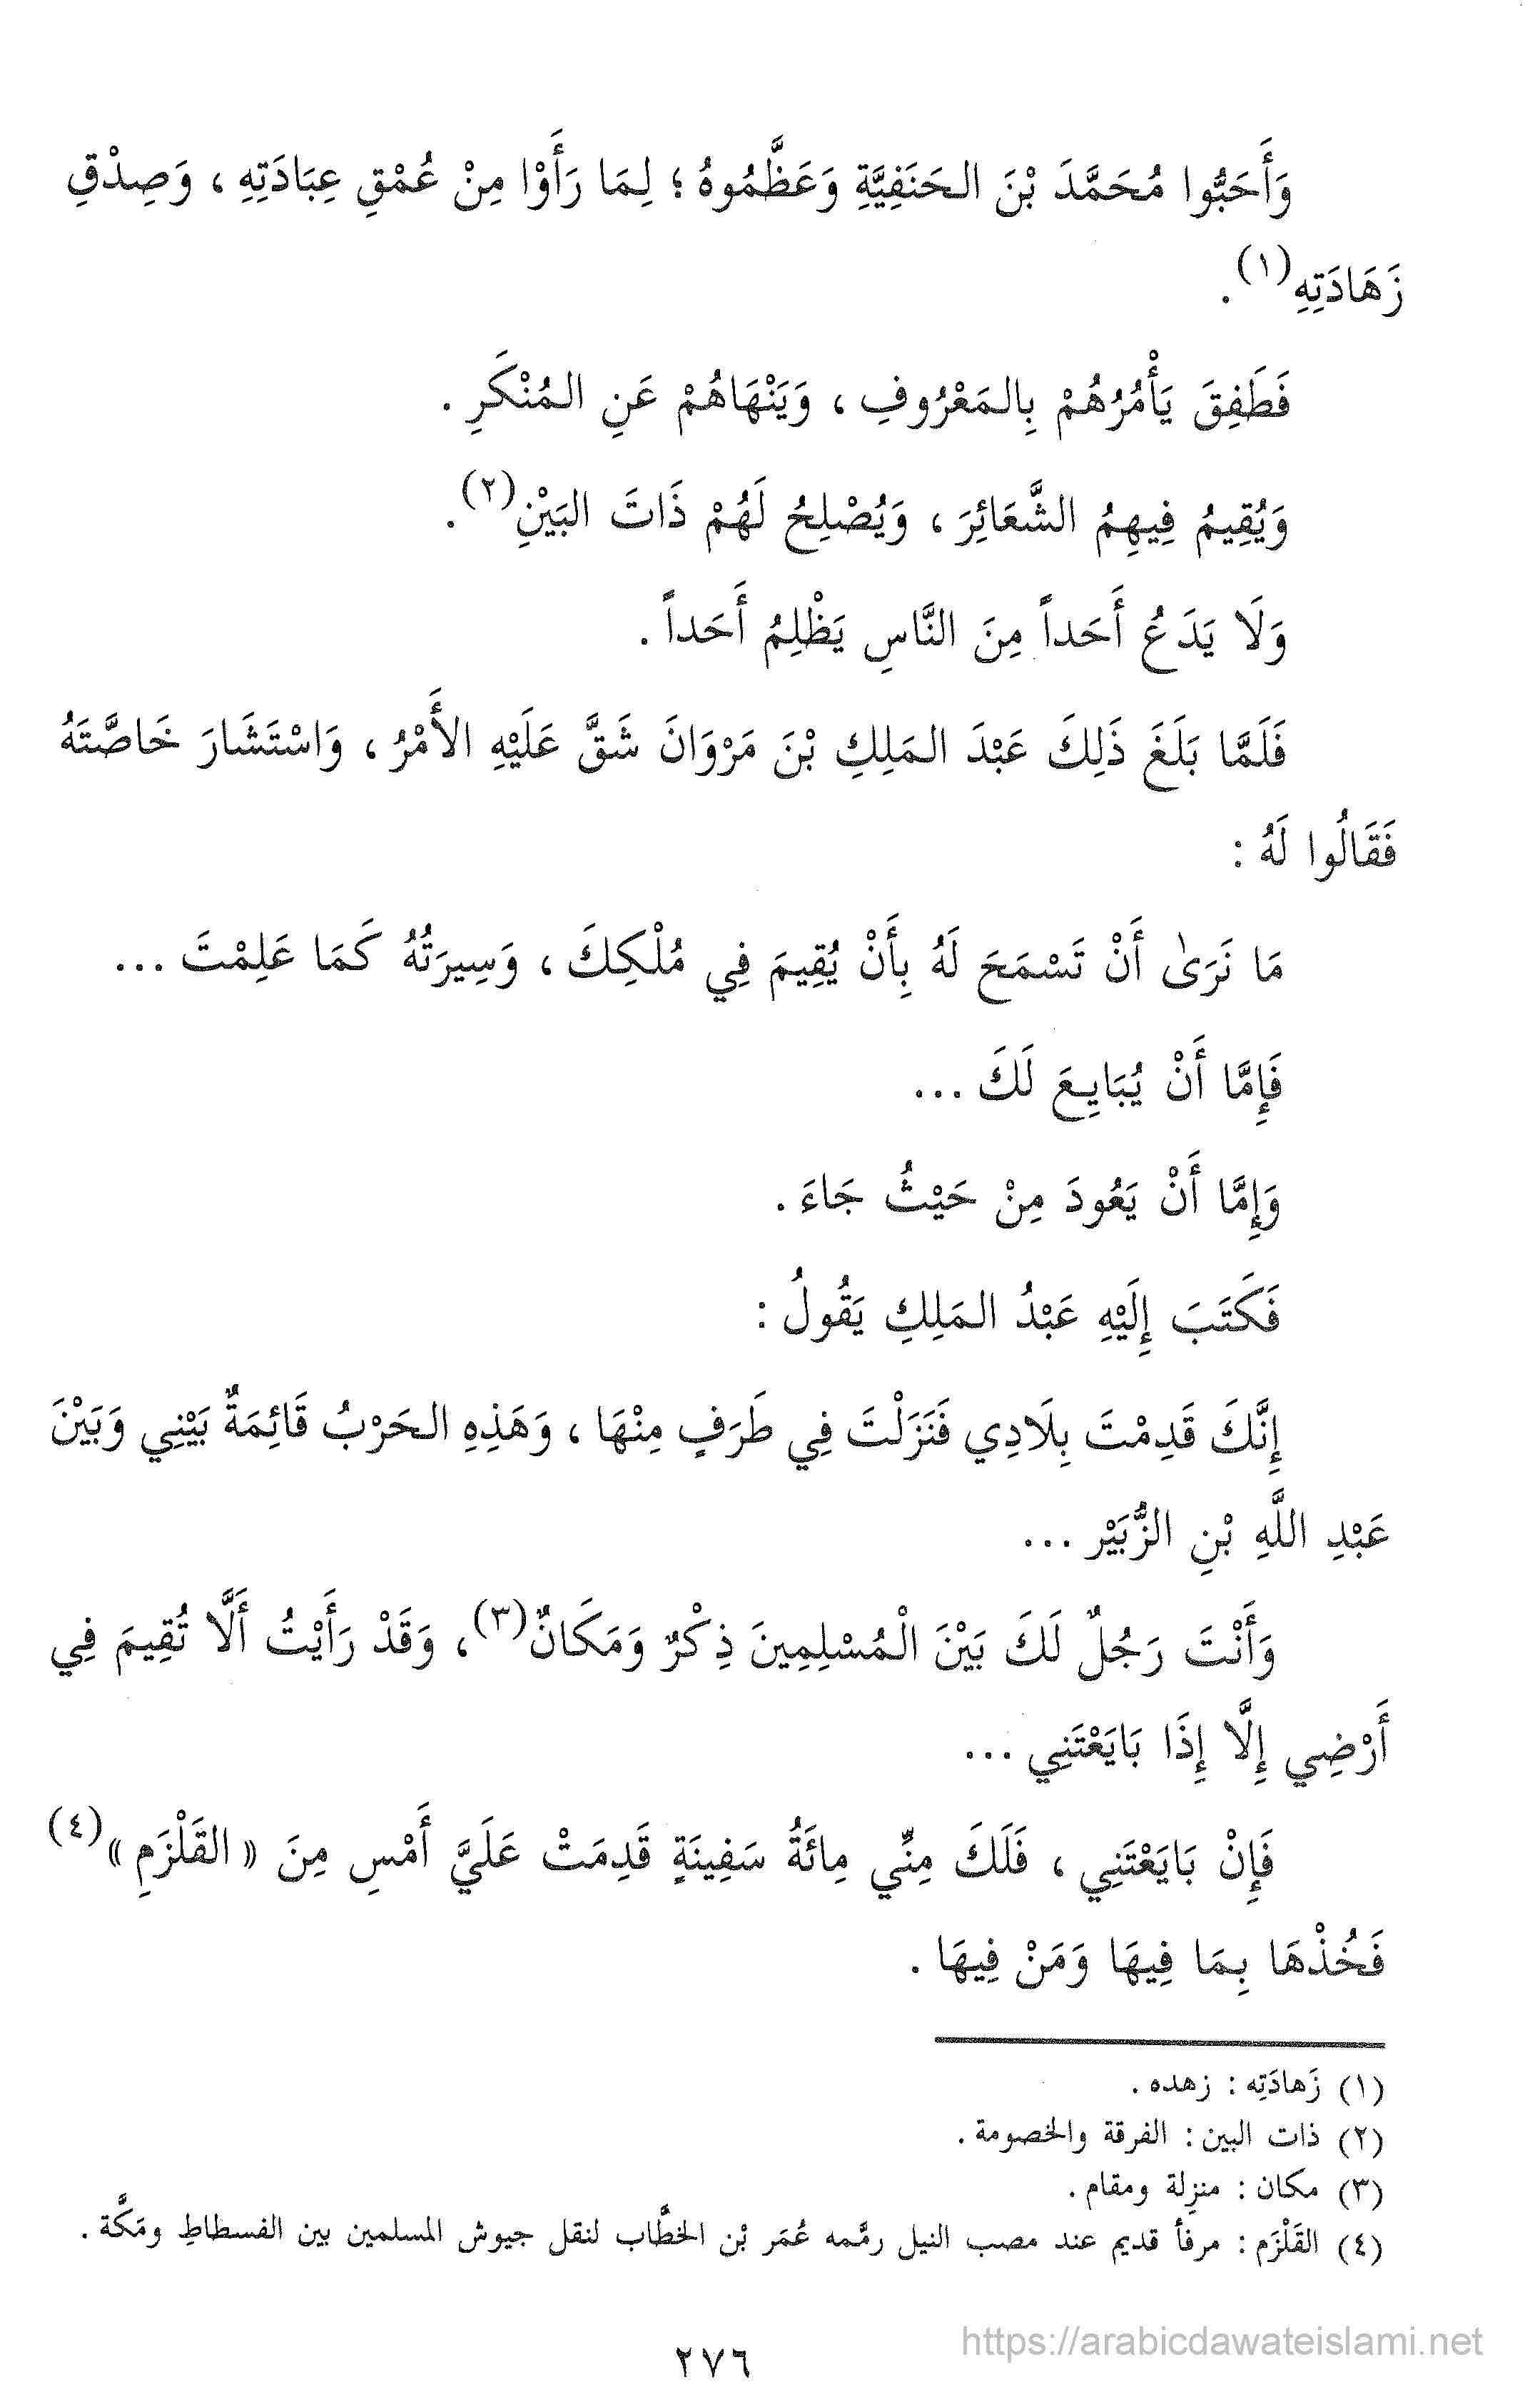 وَأَحَبُّوا مُحَمَّدَ بْنَ الحَنَفِيَّةِ وَعَظَّمُوهُ ؛ لِمَا رَأَوْا مِنْ عُمْقِ عِبَادَتِهِ ، وَصِدْقِ
زَهَادَتِهِ(١) .
فَطَفِقَ يَأْمُرُهُمْ بِالمَعْرُوفِ ، وَيَنْهَاهُمْ عَنِ المُنْكَرِ .
وَيُقِيمُ فِيهِمُ الشَّعَائِرَ ، وَيُصْلِحُ لَهُمْ ذَاتَ البَيْنِ(٢) .
وَلَا يَدَعُ أَحَداً مِنَ النَّاسِ يَظْلِمُ أَحَداً .
فَلَمَّا بَلَغَ ذَلِكَ عَبْدَ المَلِكِ بْنَ مَرْوَانَ شَقَّ عَلَيْهِ الأَمْرُ ، وَاسْتَشَارَ خَاصَّتَهُ
فَقَالُوا لَهُ :
مَا نَرَىٰ أَنْ تَسْمَحَ لَهُ بِأَنْ يُقِيمَ فِي مُلْكِكَ ، وَسِيرَتُهُ كَمَا عَلِمْتَ ...
فَإِمَّا أَنْ يُبَايِعَ لَكَ ...
وَإِمَّا أَنْ يَعُودَ مِنْ حَيْثُ جَاءَ .
فَكَتَبَ إِلَيْهِ عَبْدُ المَلِكِ يَقُولُ :
إِنَّكَ قَدِمْتَ بِلَادِي فَنَزَلْتَ فِي طَرَفٍ مِنْهَا ، وَهَذِهِ الحَرْبُ قَائِمَةٌ بَيْنِي وَبَيْنَ
عَبْدِ اللَّهِ بْنِ الزُّبَيْر ...
وَأَنْتَ رَجُلٌ لَكَ بَيْنَ الْمُسْلِمِينَ ذِكْرٌ وَمَكَانٌ(٣) ، وَقَدْ رَأَيْتُ أَلَّا تُقِيمَ فِي
أَرْضِي إِلَّا إِذَا بَايَعْتَنِي ...
فَإِنْ بَايَعْتَنِي ، فَلَكَ مِنِّي مِائَةُ سَفِينَةٍ قَدِمَتْ عَلَيَّ أَمْسِ مِنَ « القَلْزَمِ »(٤)
فَخُذْهَا بِمَا فِيهَا وَمَنْ فِيهَا .
(١) زَهادَتِه : زهده .
(٢) ذات البين : الفرقة والخصومة .
(٣) مكان : منزِلة ومقام .
(٤) القَلْزَم : مرفأ قديم عند مصب النيل رمَّمه عُمَر بْن الخطَّاب لنقل جيوش المسلمين بين الفسطاطِ ومَكَّة .
٢٧٦
https://arabicdawateislami.net